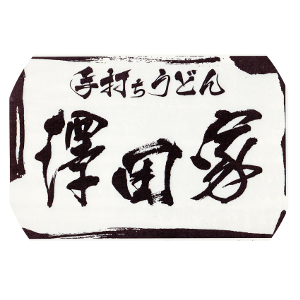 手打ちうどん
澤田家